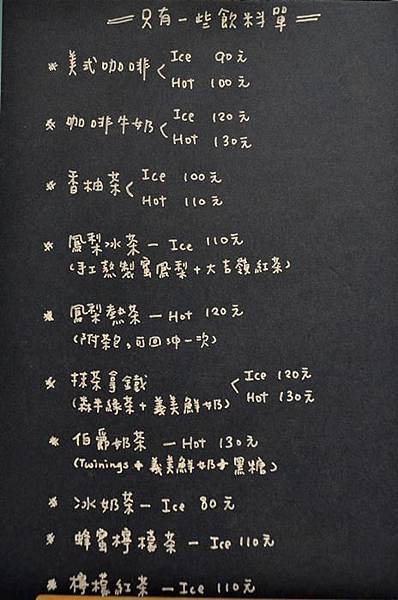 只有一些飲料單
* 美式咖啡 < Ice 90元
Hot 100元
* 咖啡牛奶 < Ice 120元
Hot 130元
* 香柚茶 < Ice 100元
Hot 110元
* 鳳梨冰茶 — Ice 110元
(手工熬製蜜鳳梨+大吉嶺紅茶)
* 鳳梨熱茶 — Hot 120元
(附茶包,可回沖一次)
* 抹茶拿鐵 < Ice 120元
(森半綠茶+義美鮮奶) Hot 130元
* 伯爵奶茶 — Hot 130元
(Twinings+義美鮮奶+黑糖)
* 冰奶茶 — Ice 80元
* 蜂蜜檸檬茶 — Ice 110元
* 檸檬紅茶 — Ice 110元